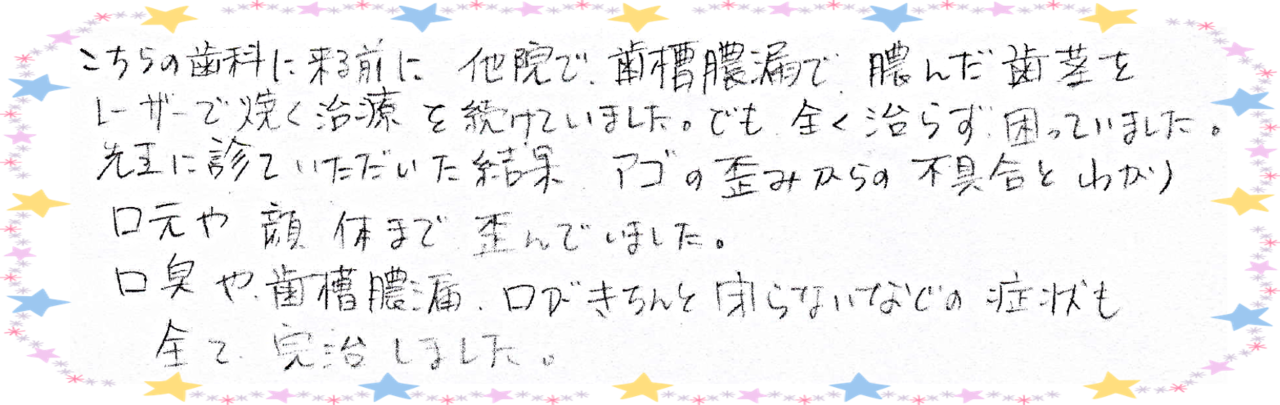 こちらの歯科に来る前に 他院で、歯槽膿漏で 膿んだ歯茎を
レーザーで焼く治療を続けていました。でも、全く治らず、困っていました。
先生に診ていただいた結果 アゴの歪みからの不具合とわかり
口元や 顔 体まで 歪んでいました。
口臭や、歯槽膿漏、口がきちんと閉らないなどの症状も
全て、完治しました。